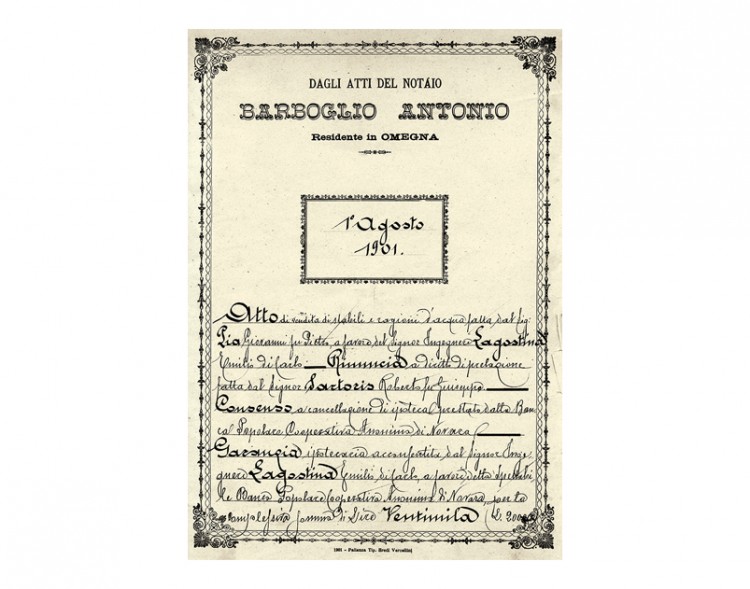 DAGLI ATTI DEL NOTAIO
BARBOGLIO ANTONIO
Residente in OMEGNA
1° Agosto
1901.
Atto di vendita di stabili e ragioni d'acqua fatta dal Sig.
Pio Giovanni fu Pietro, a favore del Signor Ingegnere Lagostina
Emilio di Carlo — Rinuncia a diritto di prelazione
fatta dal Signor Sartoris Roberto fu Giuseppe —
Consenso a cancellazione di ipoteca prestato dalla Ban
ca Popolare Cooperativa Anonima di Novara —
Garanzia ipotecaria acconsentita dal Signor Inge
gnere Lagostina Emilio di Carlo, a favore della
le Banca Popolare Cooperativa Anonima di Novara, per la
complessiva somma di Lire Ventimila (L. 20000
1901 – Pallanza Tip. Eredi Vercellini